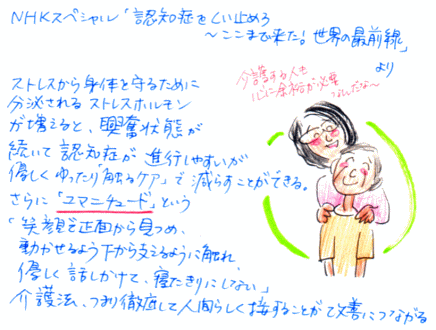 NHKスペシャル「認知症をくい止めろ
～ここまで来た！世界の最前線」
より
介護する人も
心に余裕が必要
なんだな～
ストレスから身体を守るために
分泌されるストレスホルモン
が増えると、興奮状態が
続いて認知症が進行しやすいが
優しくゆったり「触るケア」で減らすことができる。
さらに「ユマニチュード」という
「笑顔を正面から見つめ、
動かせるよう下から支えるように触れ、
優しく話しかけて、寝たきりにしない」
介護法、つまり徹底して人間らしく接することが改善につながる